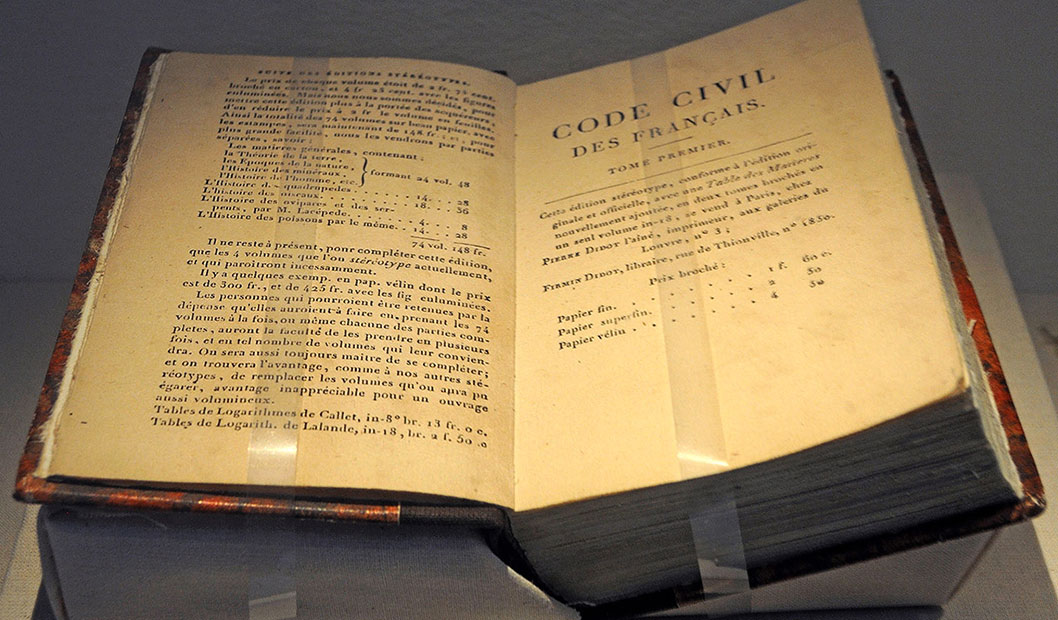 SUITE DES ÉDITIONS STÉRÉOTYPES.
Le prix de chaque volume étoit de 2 fr. 75 cent.
broché en carton, et 4 fr 25 cent. avec les figures
enluminées. Mais nous nous sommes décidés, pour
mettre cette édition plus à la portée des acquéreurs,
d'en réduire le prix à 2 fr le volume en feuilles.
Ainsi la totalité des 74 volumes sur beau papier, avec
les estampes, sera maintenant de 148 fr.; et, pour
plus grande facilité, nous les vendrons par parties
séparées, savoir:
Les matieres générales, contenant:
la Théorie de la terre,
les Époques de la nature,
l'Histoire des minéraux,
l'Histoire de l'homme, etc. } formant 24 vol. 48
L'Histoire des quadrupedes. . . . 14. . . 28
L'histoire des oiseaux. . . . . 18. . . 36
L'Histoire des ovipares et des ser-
pents, par M. Lacépede. . . . 4. . . 8
L'Histoire des poissons par le même. . 14. . . 28
74 vol. 148 fr.
Il ne reste à présent, pour compléter cette édition,
que les 4 volumes que l'on stéréotype actuellement,
et qui paroitront incessamment.
Il y a quelques exemp. en pap. vélin dont le prix
est de 300 fr., et de 425 fr. avec les fig enluminées.
Les personnes qui pourroient être retenues par la
dépense qu'elles auroient à faire en prenant les 74
volumes à la fois, ou même chacune des parties com-
pletes, auront la faculté de les prendre en plusieurs
fois, et en tel nombre de volumes qui leur convien-
dra. On sera aussi toujours maitre de se compléter;
et on trouvera l'avantage, comme à nos autres sté-
réotypes, de remplacer les volumes qu'on aura pu
égarer, avantage inappréciable pour un ouvrage
aussi volumineux.
Tables de Logarithmes de Callet, in-8º br. 13 fr. 0 c.
Tables de Logarith. de Lalande, in-18, br. 2 f. 50 .0
CODE CIVIL
DES FRANÇAIS.
TOME PREMIER.
Cette édition stéréotype, conforme à l'édition ori-
ginale et officielle, avec une Table des Matieres
nouvellement ajoutée, en deux tomes brochés en
un seul volume in-18, se vend à Paris, chez
PIERRE DIDOT l'aîné, imprimeur, aux galeries du
Louvre, nº 3;
FIRMIN DIDOT, libraire, rue de Thionville, nº 1850.
Prix broché:
Papier fin. . . . . . . 1 f. 60 c.
Papier superfin. . . . . . 2 50
Papier vélin . . . . . . 4 50